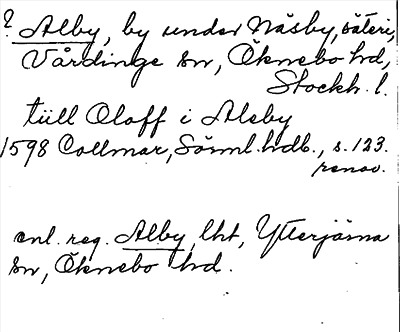 ? Alby, by under Näsby, säteri,
Vårdinge sn, Öknebo hd,
Stockh. l.
till Oloff i Aleby
1598 Collmar, Sörml. hdb., s. 123.
renov.
enl. reg. Alby, lht, Ytterjärna
sn, Öknebo hd.